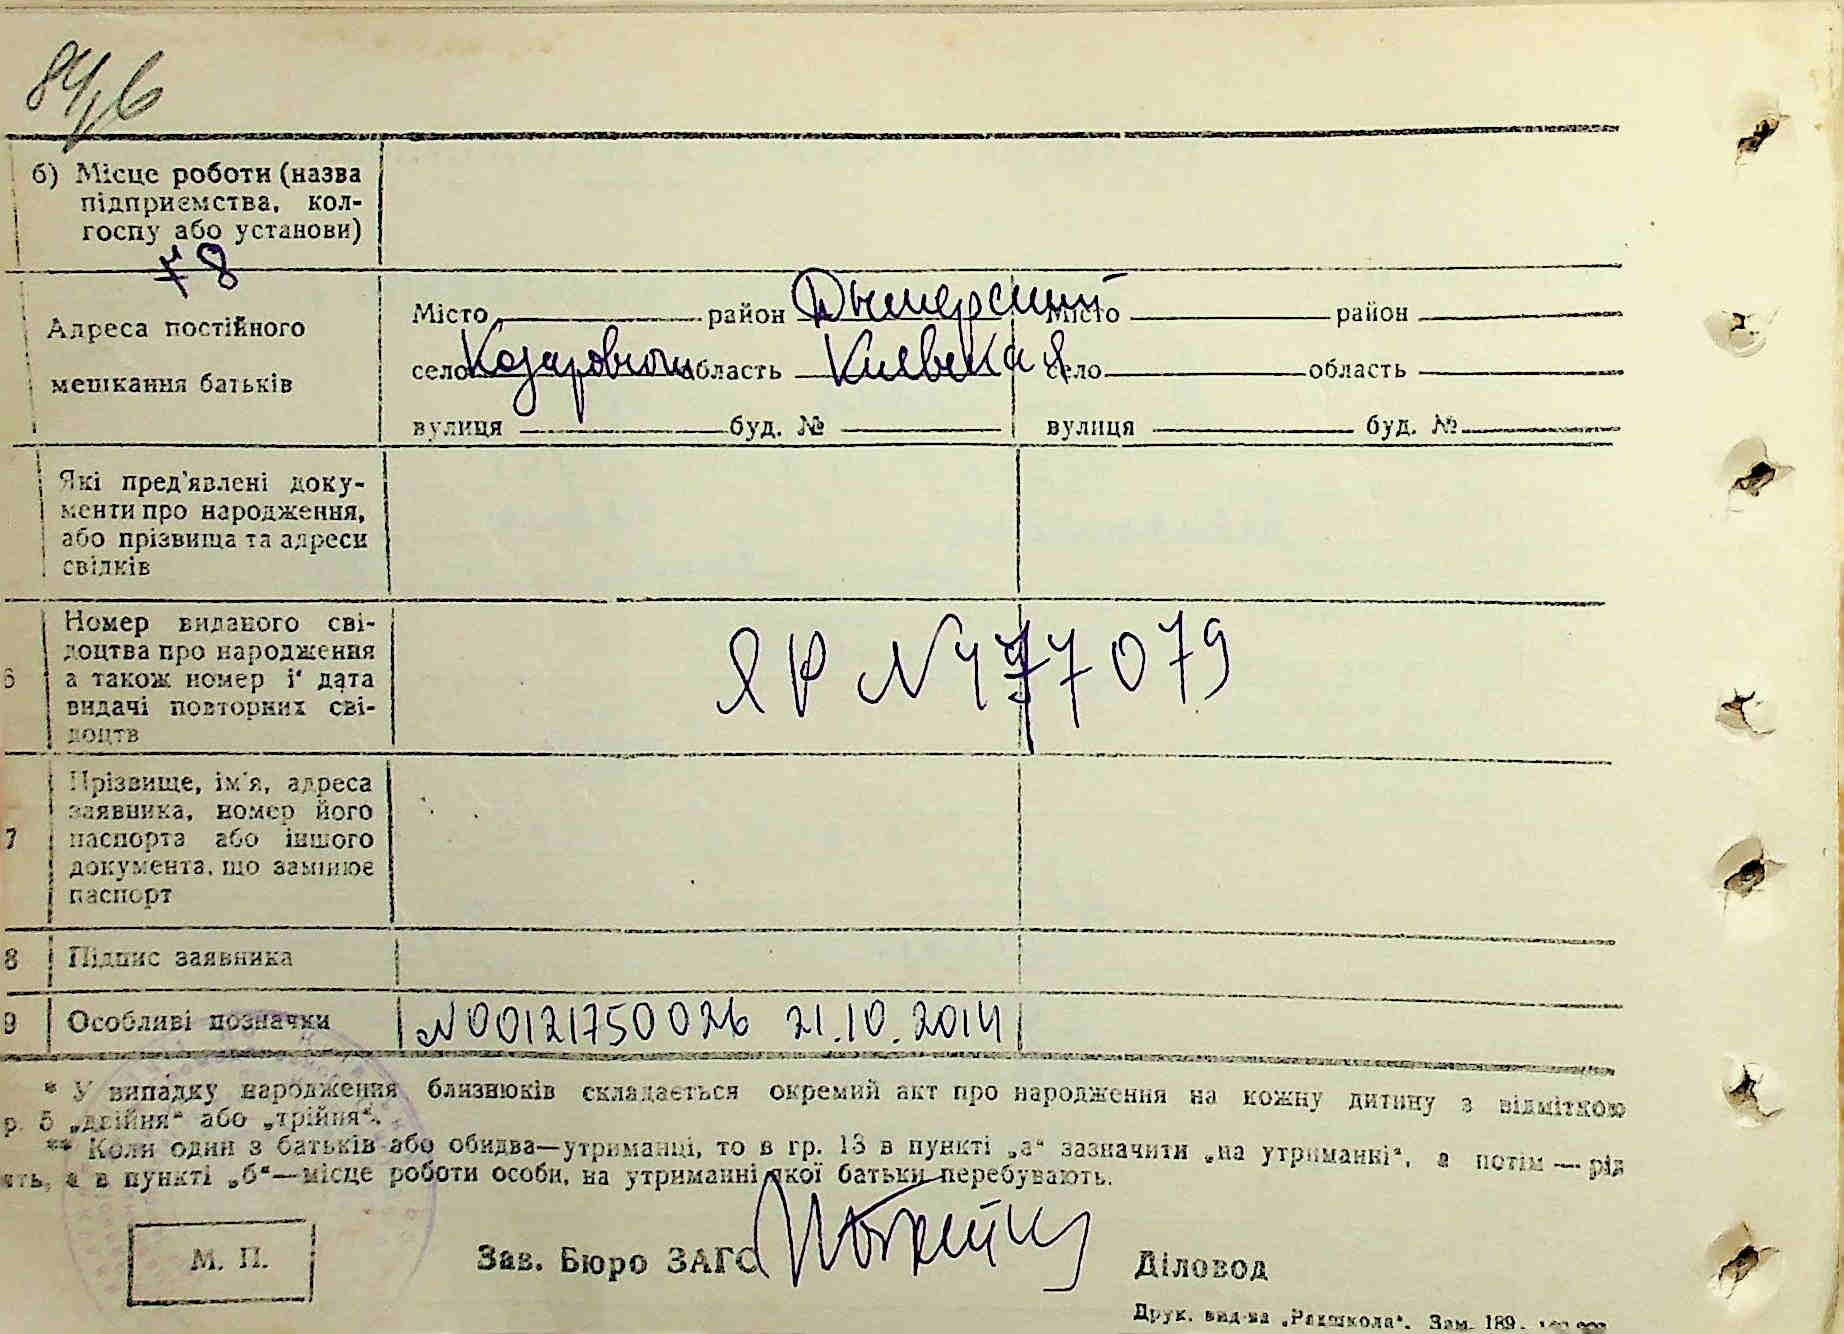 84/6
б) Місце роботи (назва
підприємства, кол-
госпу або установи)
78
Адреса постійного
мешкання батьків
Місто район Дымерский Місто район
село Козаровичи область Киевская село область
вулиця буд. № вулиця буд. №
Які пред'явлені доку-
менти про народження,
або прізвища та адреси
свідків
6
Номер виданого сві-
доцтва про народження
а також номер і дата
видачі повторних сві-
доцтв
ЯР № 477079
7
Прізвище, ім'я, адреса
заявника, номер його
паспорта або іншого
документа, що замінює
паспорт
8 Підпис заявника
9 Особливі позначки N00121750026 21.10.2014
* У випадку народження близнюків складається окремий акт про народження на кожну дитину з відміткою
р. 5 „двійня“ або „трійня“.
** Коли один з батьків або обидва—утриманці, то в гр. 13 в пункті „а“ зазначити „на утриманні“, а потім — рід
ять, а в пункті „б“—місце роботи особи, на утриманні якої батьки перебувають.
М. П. Зав. Бюро ЗАГС Діловод
Друк. вид-ва „Радшкола“. Зам. 189.